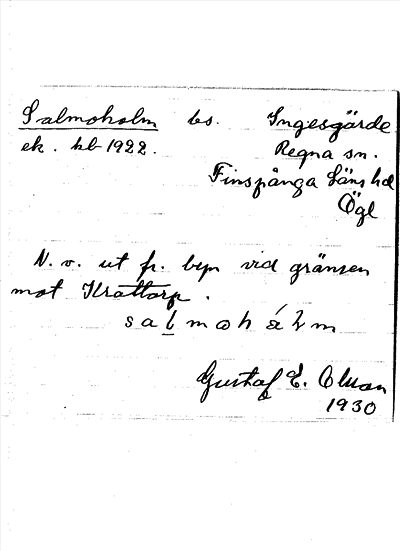 Salmoholm bs. Ingesgärde
ek. kb 1922. Regna sn.
Finspånga läns hd
Ögl
N. v. ut fr. byn vid gränsen
mot Krattorp.
salmoh
Gustaf E. Olson
1930